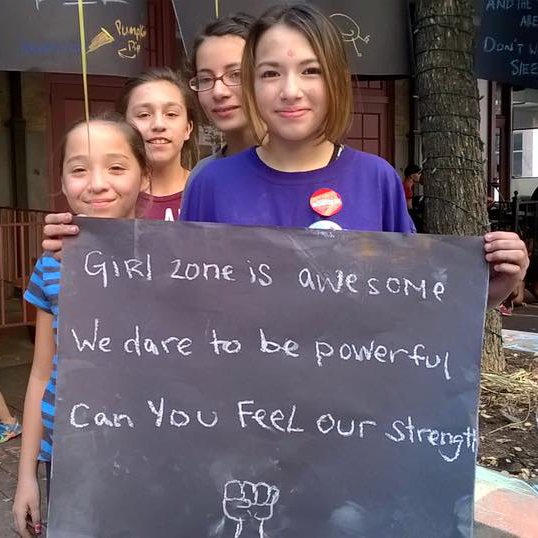 Pumpkin Pie
AND THE
ARE
DON'T W
SLEE
GiRl zone is awesome
We dare to be powerful
Can You FeeL our strength